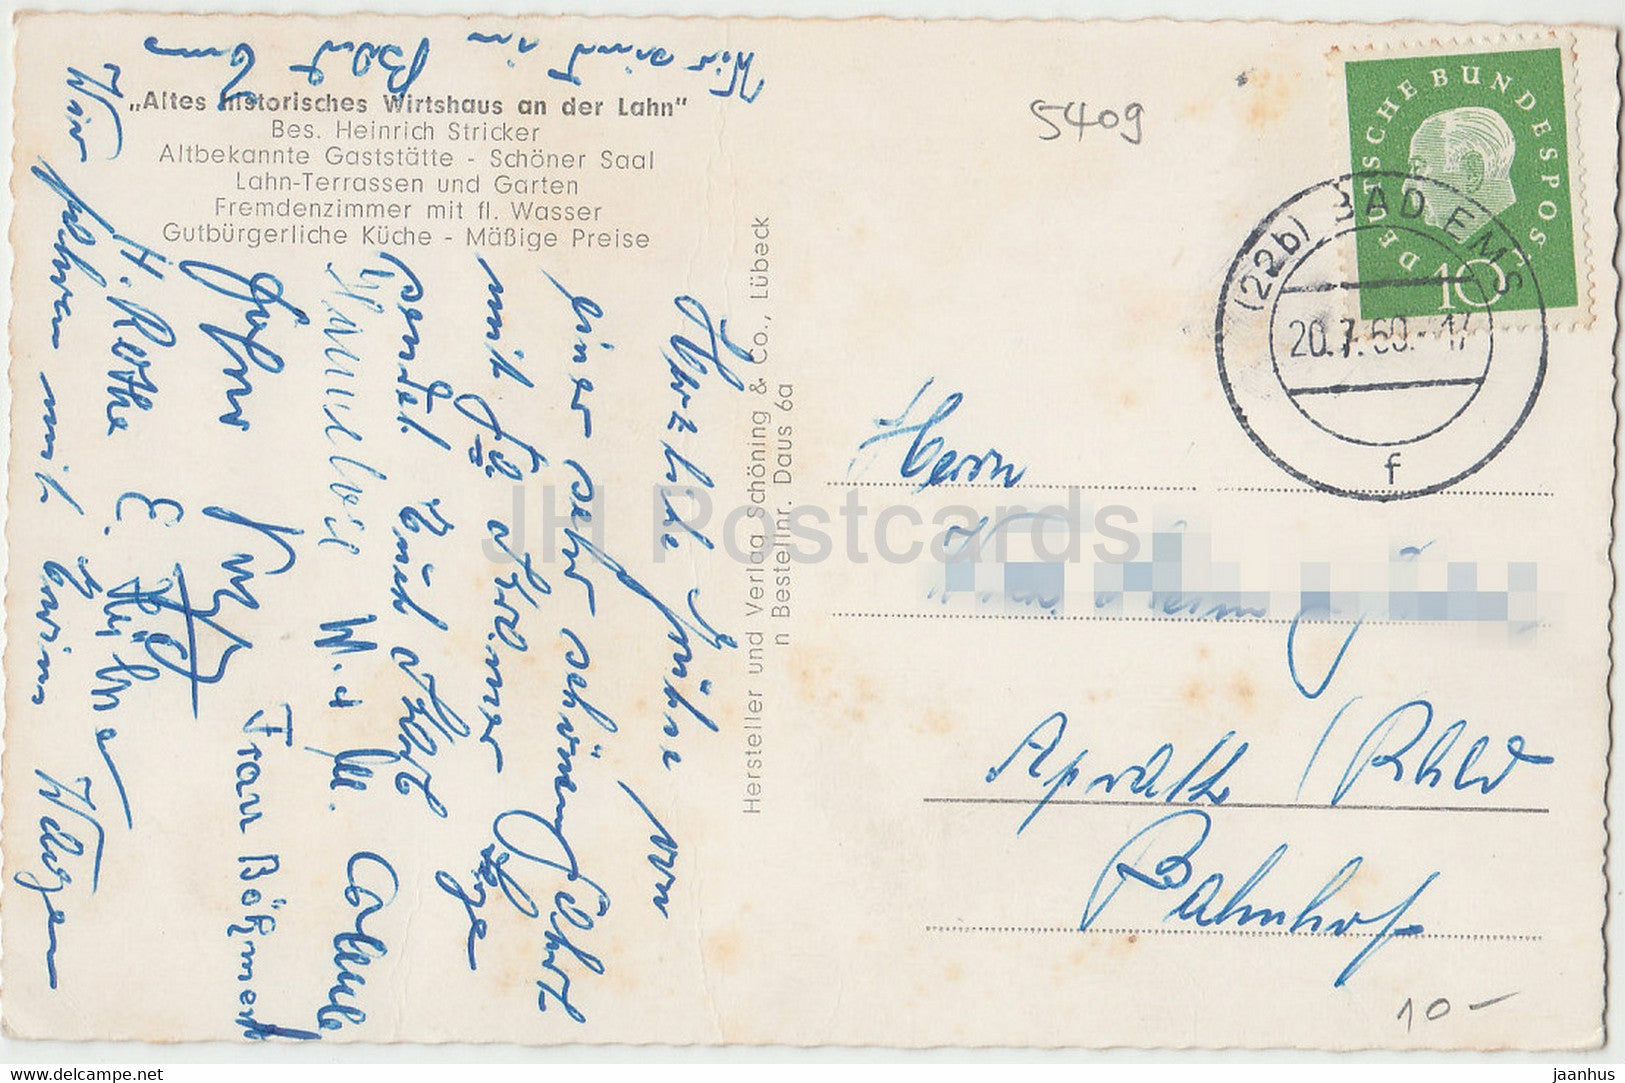 „Altes historisches Wirtshaus an der Lahn"
Bes. Heinrich Stricker
Altbekannte Gaststätte - Schöner Saal
Lahn-Terrassen und Garten
Fremdenzimmer mit fl. Wasser
Gutbürgerliche Küche - Mäßige Preise
Wir sind in
Bad Ems
Herzliche Grüße von
einer sehr schönen Fahrt
mit
sendet Euch
W. u. M.
Frau Böhmert
H. Rothe E. Hübner
Wir fahren mit
Hersteller und Verlag Schöning & Co., Lübeck
n Bestellnr. Daus 6a
5409
DEUTSCHE BUNDESPOST
10
(22b) BAD EMS
20.7.60.-17
f
Herrn
Aprath (Rhld
Bahnhof
10-
JH Postcards
www.delcampe.net
jaanhus